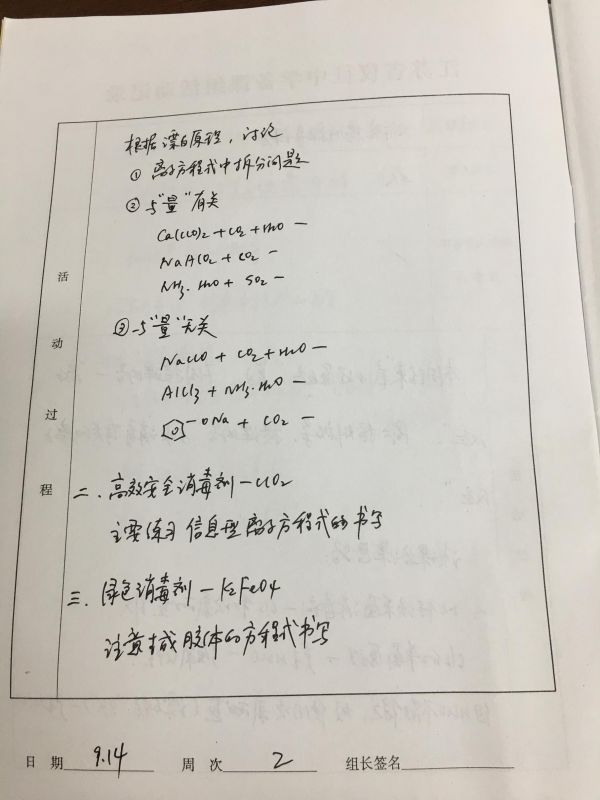 根据漂白原理，讨论
① 离子方程式中拆分问题
② 与"量"有关
Ca(ClO)2 + CO2 + H2O —
NaAlO2 + CO2 —
NH3·H2O + SO2 —
③ 与"量"无关
NaClO + CO2 + H2O —
AlCl3 + NH3·H2O —
-ONa + CO2 —
活动过程
二、高效安全消毒剂—ClO2
主要练习 信息型离子方程式的书写
三、绿色消毒剂—K2FeO4
注意生成胶体的方程式书写
日 期 9.14 周 次 2 组长签名